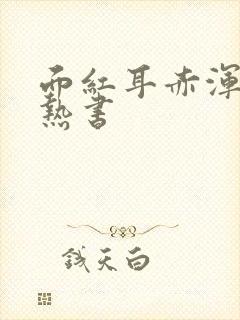 面紅耳赤渾
熱書
錢天白